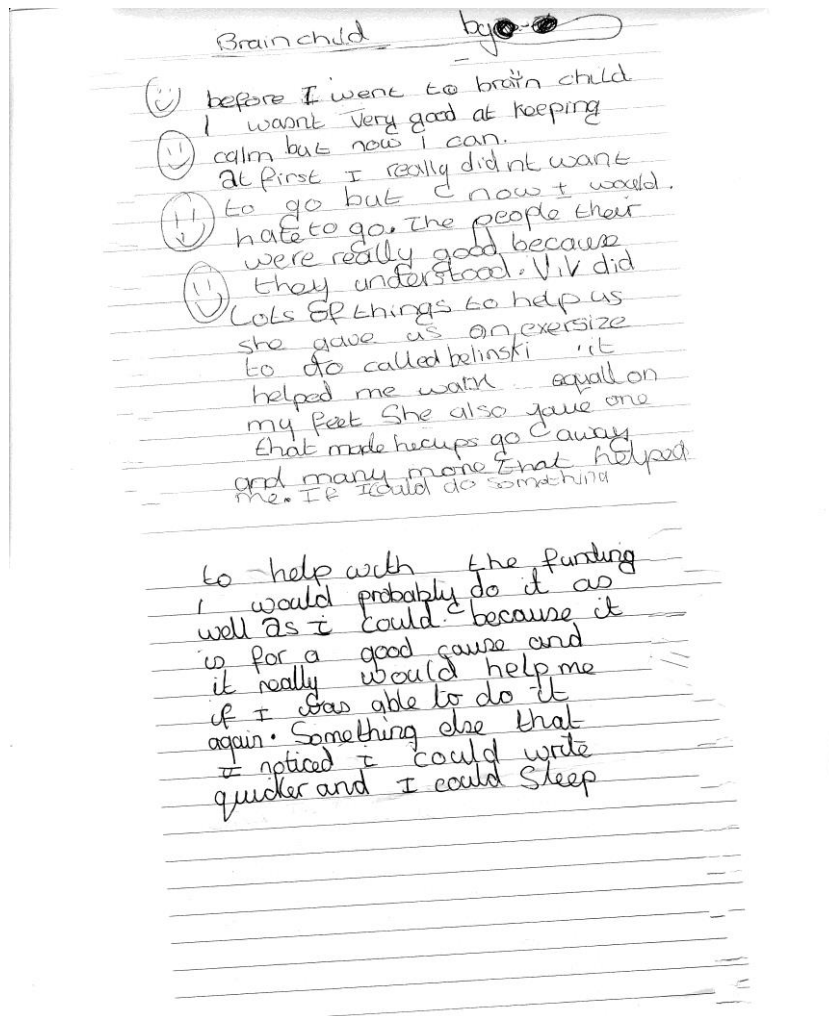 Brainchild by
before I went to brain child
I wasnt very good at keeping
calm but now I can.
at first I really didnt want
to go but now I would.
hate to go. The people their
were really good because
they understood. Viv did
Lots of things to help us
she gave us an exersize
to do called belinski it
helped me walk equall on
my feet She also gave one
that made hecups go away
and many more that helped
me. If I could do something
to help with the funding
I would probably do it as
well as i could. because it
is for a good cause and
it really would help me
if I was able to do it
again. Something else that
I noticed I could write
quicker and I could Sleep